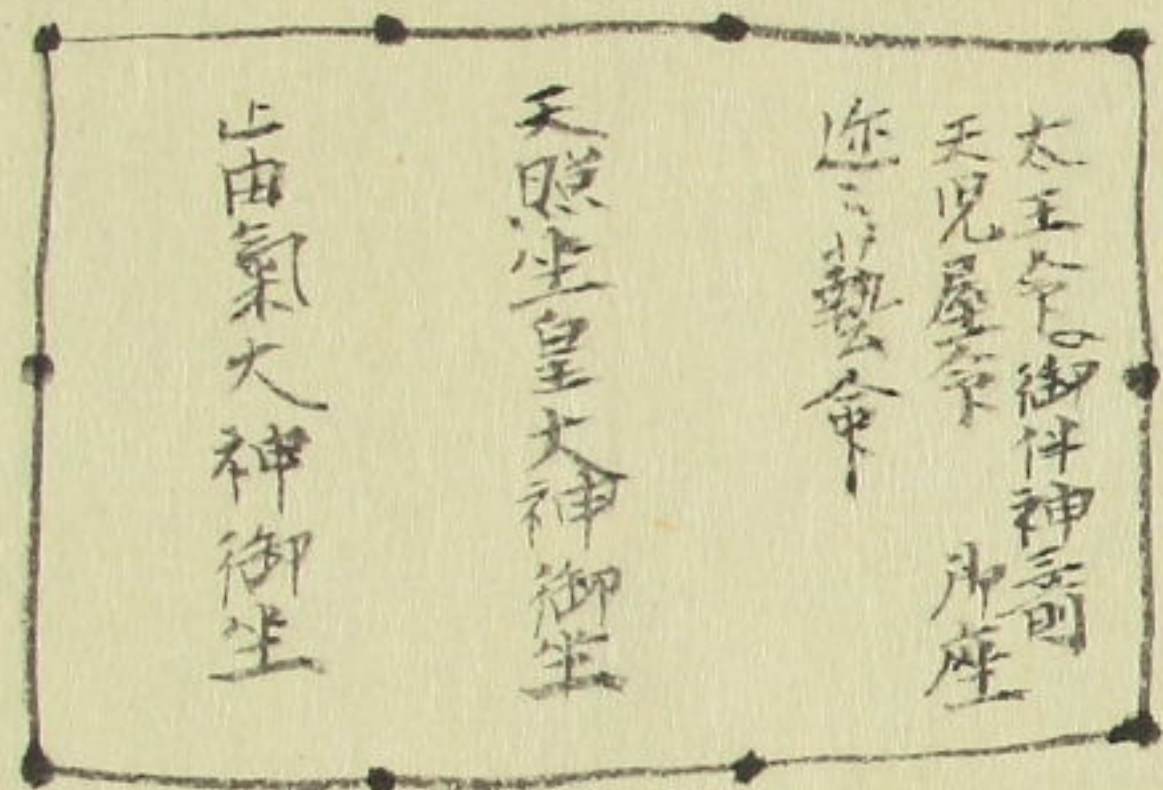 太玉命御伴神三前
天児屋命 御座
迩々藝命
天照坐皇大神御坐
止由氣大神御坐